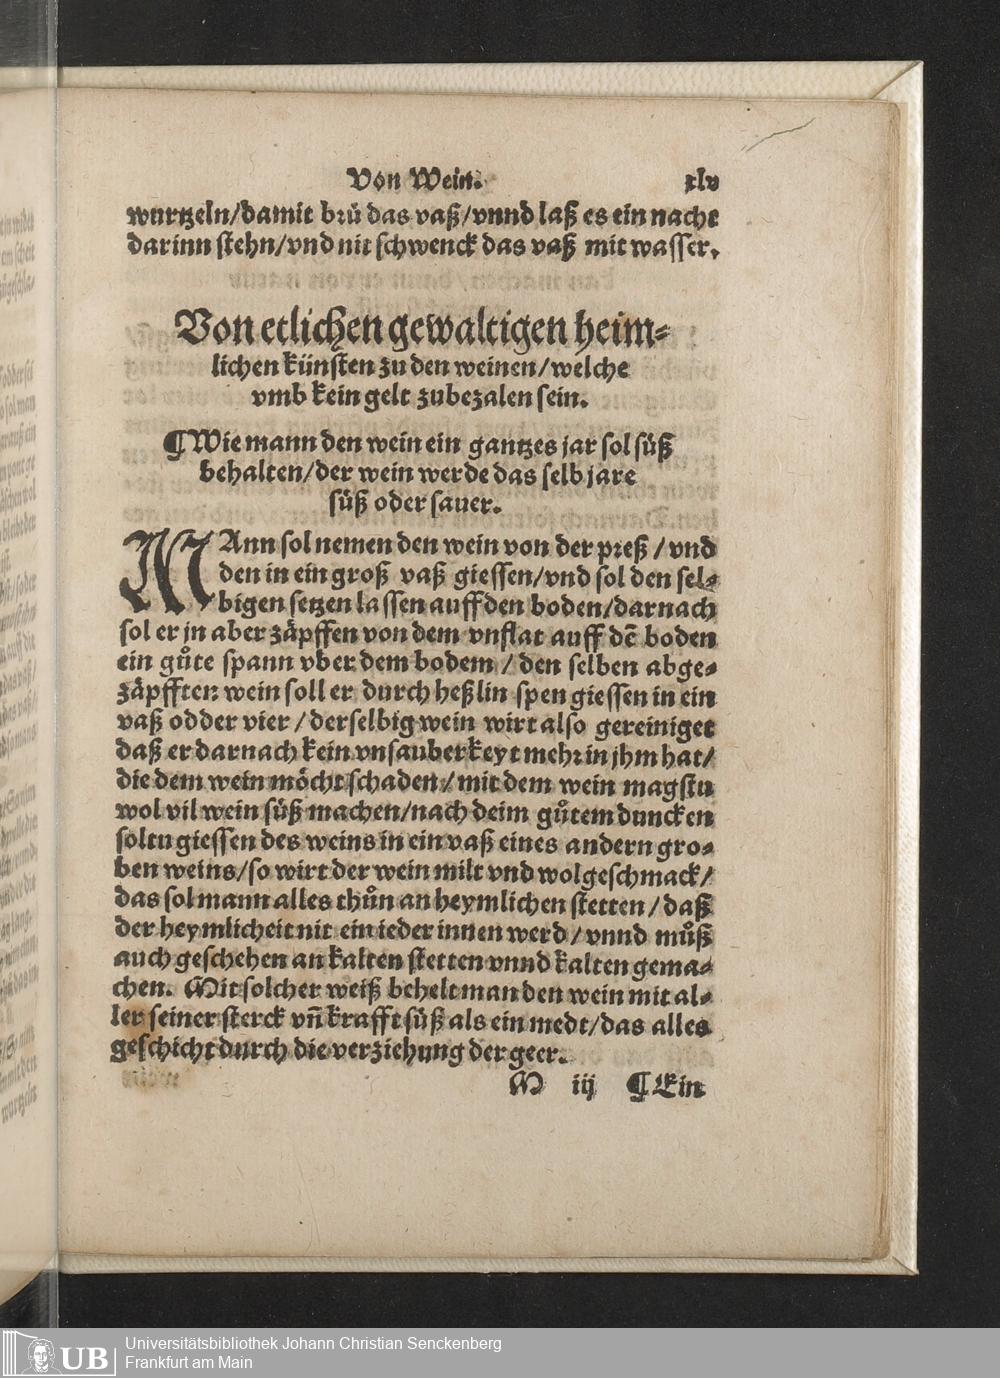 Von Wein. xlv
wurtzeln/damit brü das vaß/vnnd laß es ein nacht
darinn stehn/vnd nit schwenck das vaß mit wasser.
Von etlichen gewaltigen heim⸗
lichen künsten zu den weinen/welche
vmb kein gelt zubezalen sein.
¶Wie mann den wein ein gantzes jar sol süß
behalten/der wein werde das selb jare
süß oder saver.
MAnn sol nemen den wein von der preß/vnd
den in ein groß vaß giessen/vnd sol den sel⸗
bigen setzen lassen auff den boden/darnach
sol er jn aber zäpffen von dem vnflat auff dē boden
ein gůte spann vber dem bodem/den selben abge⸗
zäpfften wein soll er durch heßlin spen giessen in ein
vaß odder vier/derselbig wein wirt also gereiniget
daß er darnach kein vnsauberkeyt mehr in jhm hat/
die dem wein möcht schaden/mit dem wein magstu
wol vil wein süß machen/nach deim gůtem duncken
soltu giessen des weins in ein vaß eines andern gro⸗
ben weins/so wirt der wein milt vnd wolgeschmack/
das sol mann alles thůn an heymlichen stetten/daß
der heymlicheit nit ein ieder innen werd/vnnd můß
auch geschehen an kalten stetten vnnd kalten gema⸗
chen. Mit solcher weiß behelt man den wein mit al⸗
ler seiner sterck vñ krafft süß als ein medt/das alles
geschicht durch die verziehung der geer.
M iij ¶Ein
UB
Universitätsbibliothek Johann Christian Senckenberg
Frankfurt am Main